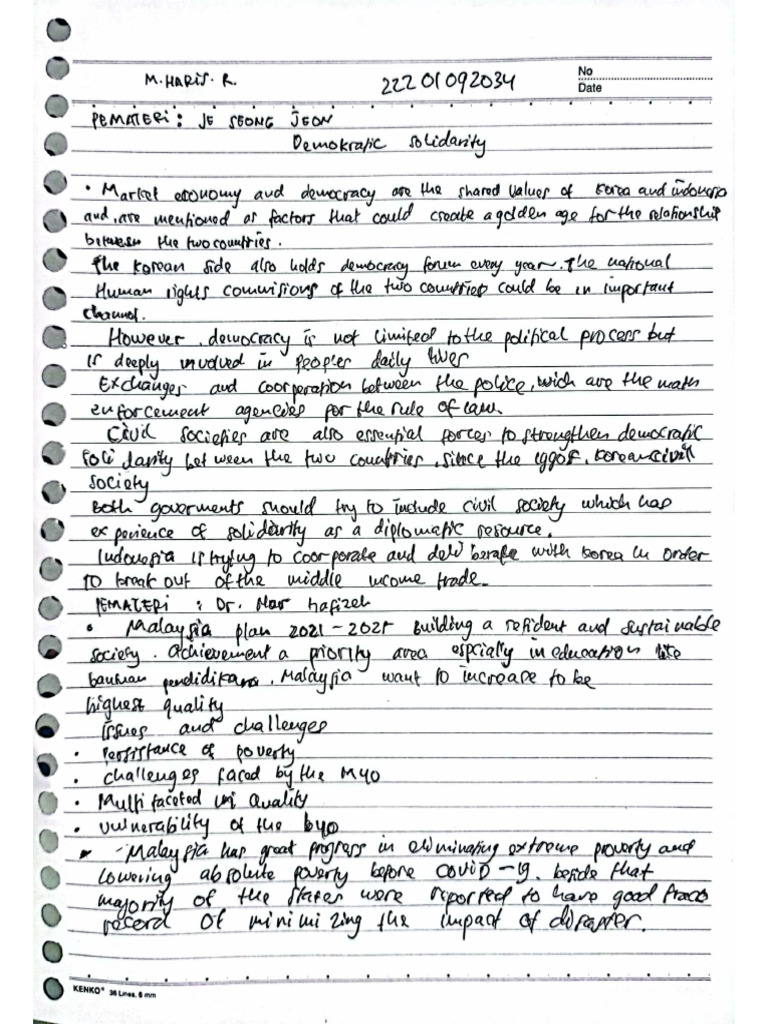 M. HARIS. R.
22201092034
No
Date
PEMATERI : JE SEONG JEON
Demokratic solidarity
• Market economy and democracy are the shared values of Korea and indonesia
and, are mentioned as factors that could create a golden age for the relationship
between the two countries.
The Korean side also holds democracy forum every year. The national
Human rights commisions of the two countries could be in important
channel.
However, democracy is not limited to the political process but
is deeply involved in peoples daily lives
Exchanges and coorperation between the police, wich are the math
enforcement agencies for the rule of law.
Civil societies are also essential forces to strengthen democratic
soli darity between the two countries, since the 1990s, Korean civil
society
Both goverments should try to include civil society which has
experience of solidarity as a diplomatic resource.
Indonesia is trying to coorporate and deliberate with Korea in order
to break out of the middle income trade.
PEMATERI : Dr. Nor hafizah
• Malaysia plan 2021 - 2025 building a resident and sustainable
society. achievement a priority area espcially in education like
bantuan pendidikan, Malaysia want to increase to be
highest quality
issues and challenges
• Persistance of poverty
• challenges faced by the M40
• Multi faceted in quality
• vulnerability of the b40
- Malaysia has great progress in eliminating extreme poverty and
lowering absolute poverty before covid -19. beside that
majority of the states were reported to have good track
record of minimizing the impact of disaster.
KENKO® 36 Lines, 6 mm